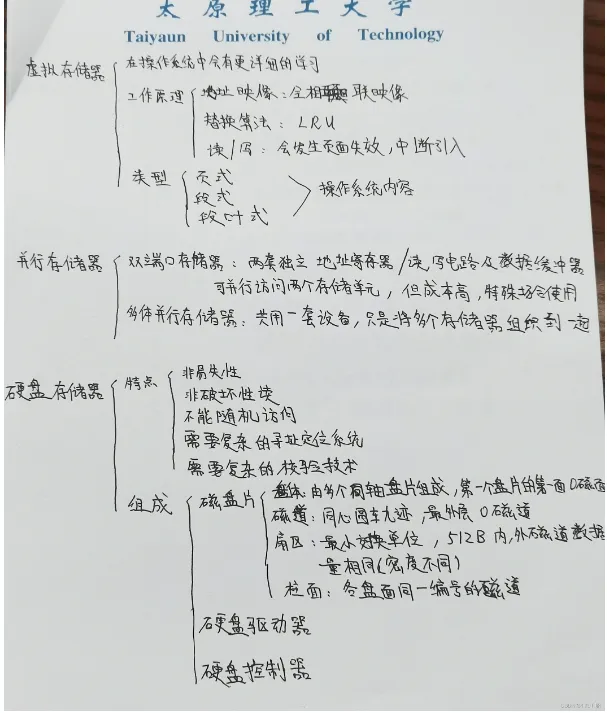 太原理工大学
Taiyaun University of Technology
虚拟存储器 在操作系统中会有更详细的学习
工作原理 地址映像：全相联映像
替换算法：LRU
读/写：会发生页面失效，中断引入
类型 页式
段式
段叶式
操作系统内容
并行存储器 双端口存储器：两套独立地址寄存器/读,写电路及数据缓冲器
可并行访问两个存储单元，但成本高，特殊场合使用
多体并行存储器：共用一套设备，只是将多个存储器组织到一起
硬盘存储器 特点 非易失性
非破坏性读
不能随机访问
需要复杂的寻址定位系统
需要复杂的校验技术
组成 磁盘片 盘体：由多个同轴盘片组成，第一个盘片的第一面0磁面
磁道：同心圆轨迹，最外层0磁道
扇区：最小交换单位，512B 内,外磁道数据
量相同(密度不同)
柱面：各盘面同一编号的磁道
硬盘驱动器
硬盘控制器